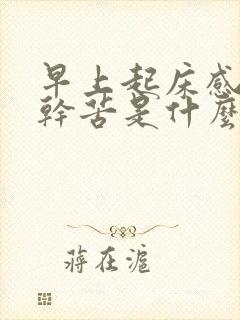 早上起床感
幹苦是什麼
蔣在滬